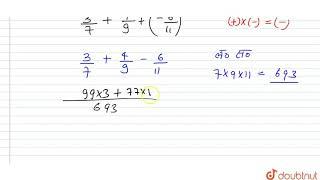 3/7 + 4/9 + (-6/11)
(+)×(-) = (-)
3/7 + 4/9 - 6/11
7×9×11 = 693
99×3 + 77×1
693
doubtnut